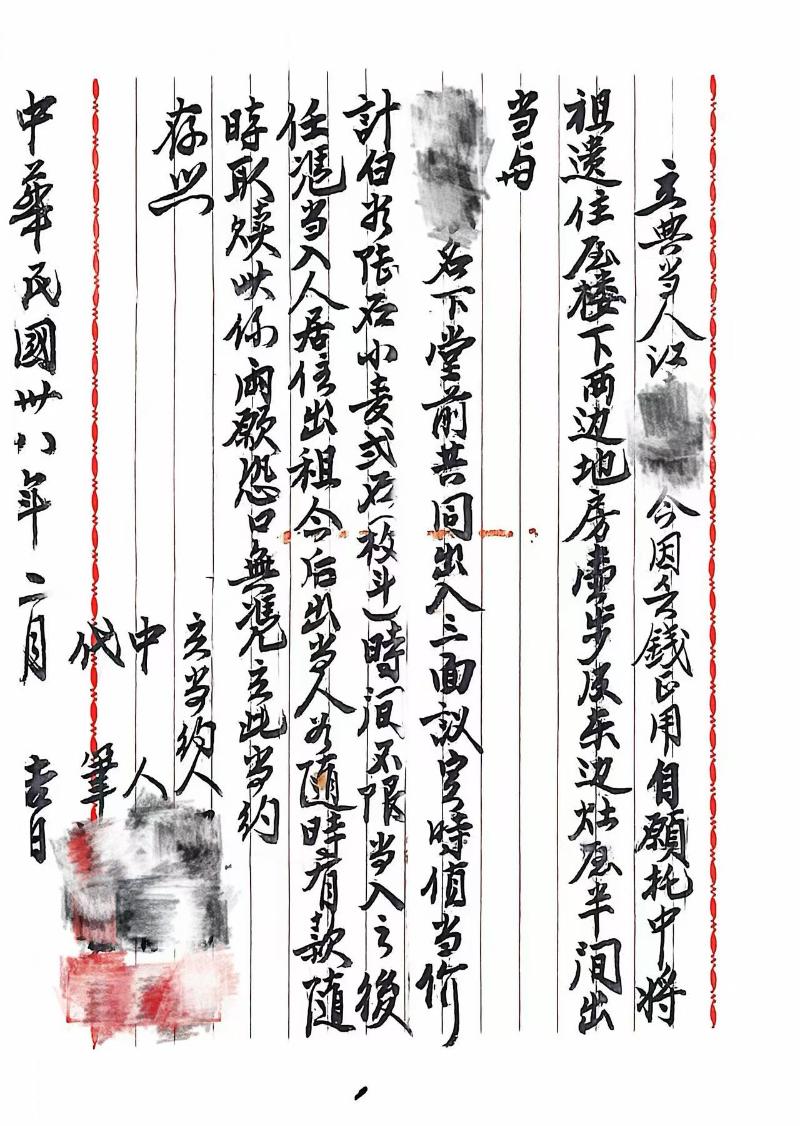 立典当人江 今因乏錢正用自願托中将
祖遺住屋楼下两边地房壹步及东边灶屋半间出
当与
名下堂前共同出入三面議定時值当价
計白谷陆石小麦弍石(枚斗)時间不限当入之後
任凭当入人居住出租今后出当人如隨時有款随
時取赎此係兩願恐口無凴立此当约
存照
立当约人
中 人
代 筆
中華民國卅八年二月 吉日